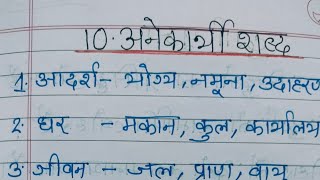 10. अनेकार्थी शब्द
1. आदर्श - योग्य, नमूना, उदाहरण
2. घर - मकान, कुल, कार्यालय
3. जीवन - जल, प्राण, वायु